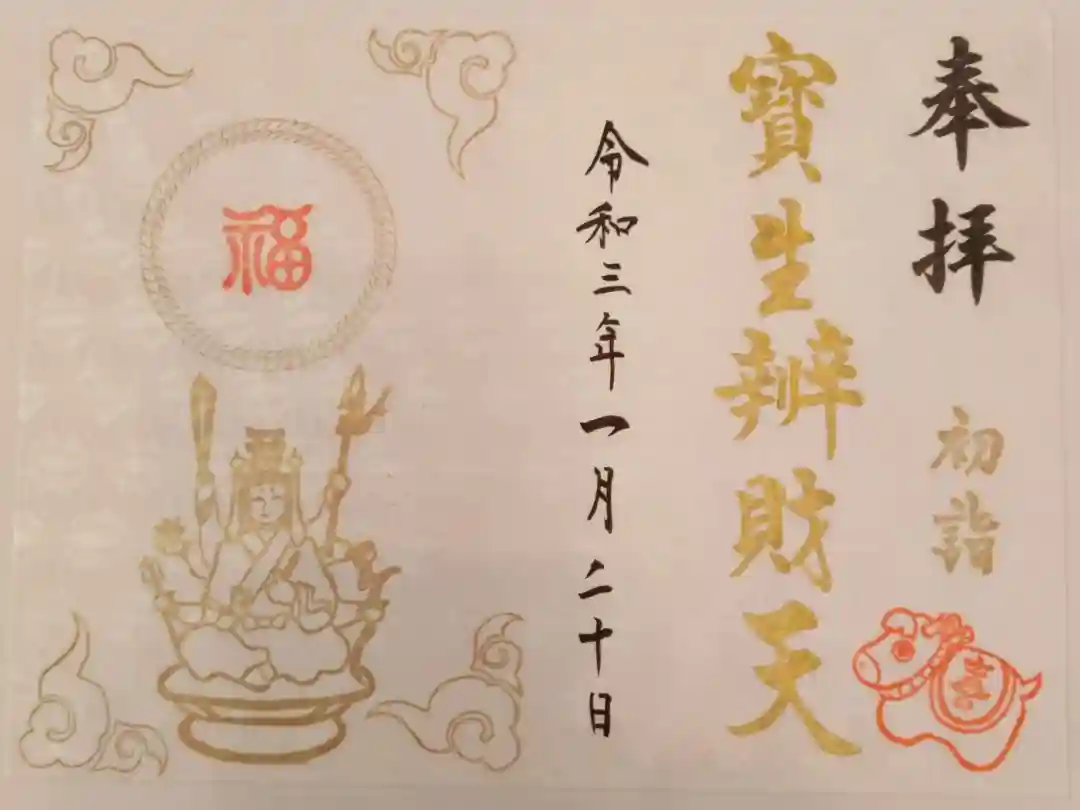 奉拝
初詣
寶生辨財天
令和三年一月二十日
福